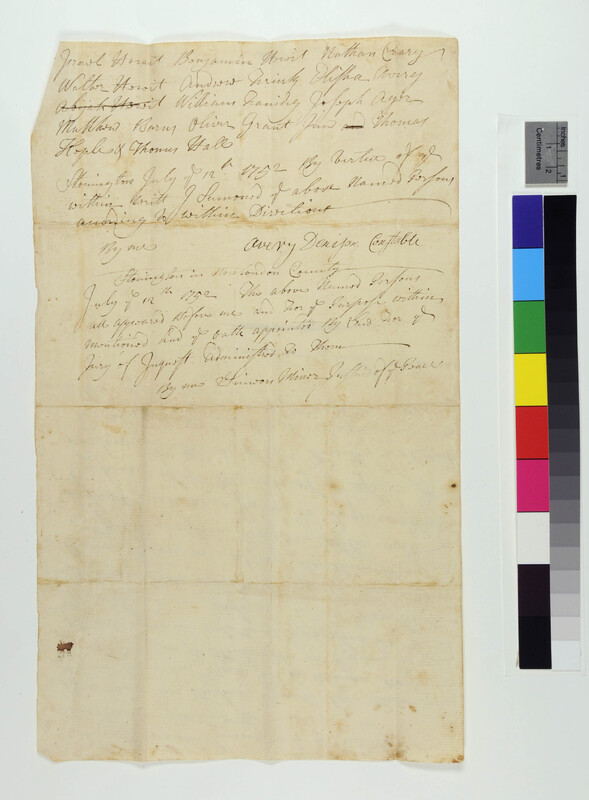 Israel Hewit Benjamin Hewit Nathan Crary
Walter Hewit Andrew Frink Elisha Avery
Abijah Hewit William Joseph Ayer
Matthew Burns Oliver Grant Jun and Thomas
Thomas Hall
Stonington July ye 12th 1752 By Virtue of ye
within Writt I Sumoned ye above Named Persons
according to within Directions
By me Avery Denison Constable
Stonington in Newlondon County
July ye 12th 1752 The above Named Persons
all appeared Before me and for ye Purpose within
mentioned and ye oath appointed By Law for ye
Jury of Inquest Administred to Them
By me Simeon Miner Justice of ye Peace
Centimetres
Inches
1
2